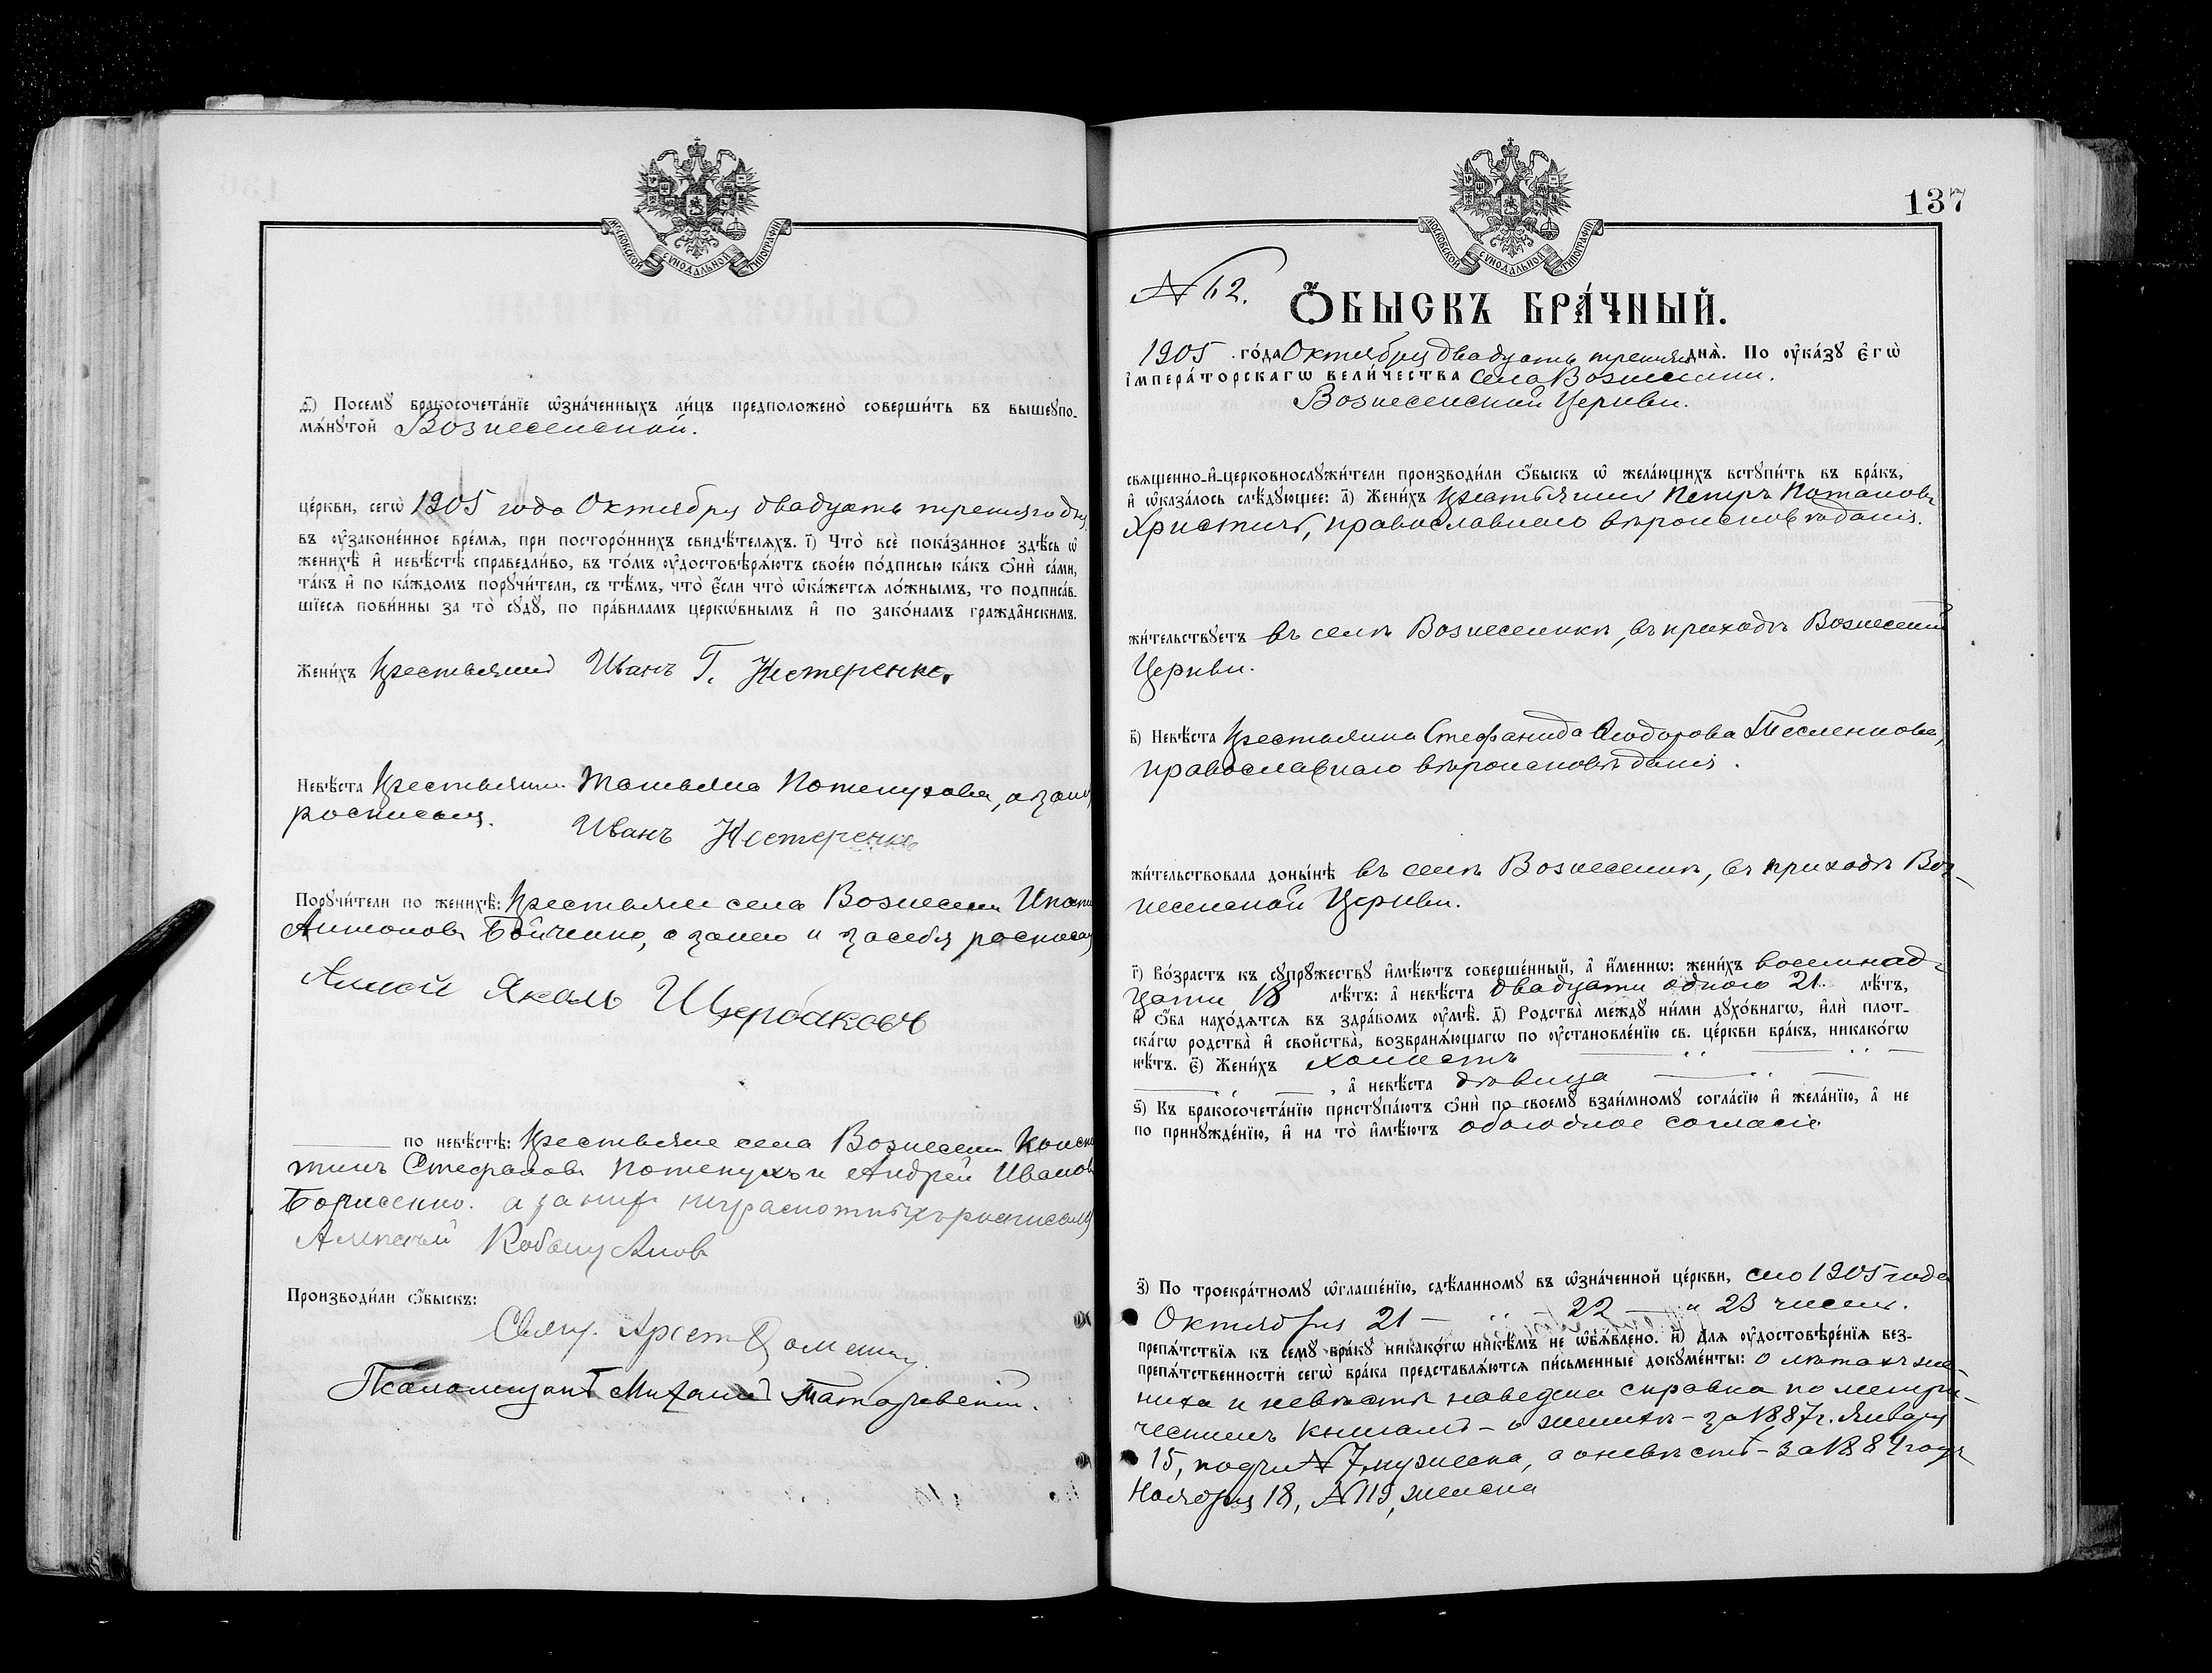 МОСКОВСКОЙ СУНОДАЛЬНОЙ ТИПОГРАФІИ
ѳ҃) Посемꙋ̀ бракосочета́нїе ѡ҆зна́ченныхъ ли́цъ предположено̀ соверши́ть въ вышеꙋпо-
мѧ́нꙋтой Вознесенской.
це́ркви, сегѡ̀ 1905 года Октября двадцать третяго дня
въ ᲂу҆зако́ненное вре́мѧ, при посторо́ннихъ свидѣ́телѧхъ. і҃) Что̀ всѐ пока́занное здѣ́сь ѡ҆
женихѣ̀ и҆ невѣ́стѣ справедли́во, въ то́мъ ᲂу҆достовѣрѧ́ютъ свое́ю по́дписью ка́къ ѻ҆нѝ са́ми,
та́къ и҆ по ка́ждомъ порꙋчи́тели, съ тѣ́мъ, что̀ є҆́сли что̀ ѡ҆ка́жется ло́жнымъ, то подписа́в-
шїеся пови́нны за то̀ сꙋдꙋ̀, по пра́виламъ церкѡ́внымъ и҆ по зако́намъ гражда̑нскимъ.
Жени́хъ крестьянин Иванъ Г. Нестеренко
Невѣ́ста крестьянка Татьяна Потепухова, а за нихъ
росписался. Иванъ Нестеренко
Порꙋчи́тели по женихѣ̀: крестьяне села Вознесенки
Антоновъ Бойченко, а за него и за себя росписался
Яковъ Щербаковъ
по невѣ́стѣ: крестьяне села Вознесенки Конста
тинъ Стефановъ Потепухъ и Андрей Иванов
Борисенко. а за нихъ неграмотныхъ росписался
Алексѣй
Производи́ли ѻ҆́быскъ:
Свящ.
Псаломщикъ Михаилъ
137
МОСКОВСКОЙ СУНОДАЛЬНОЙ ТИПОГРАФІИ
№ 62.
Ѻ҆́БЫСКЪ БРА́ЧНЫЙ.
1905 го́да Октября двадцать третяго днѧ̀. По ᲂу҆ка́зꙋ є҆гѡ̀
і҆мпера́торскагѡ вели́чества села Вознесенки.
Вознесенской Церкви.
свѧщенно-и҆-церковнослꙋжи́тели производи́ли ѻ҆́быскъ ѡ҆ жела́ющихъ встꙋпи́ть въ бра́къ,
и҆ ѡ҆каза́лось слѣ́дꙋющее: а҃) Жени́хъ крестьянинъ Петръ Потаповъ
Христичъ, православнаго вѣроисповѣданія.
жи́тельствꙋетъ въ селѣ Вознесенкѣ, въ приходѣ Вознесенской
Церкви.
в҃) Невѣ́ста крестьянка Стефанида Ѳеодорова Тесленкова,
православнаго вѣроисповѣданія.
жи́тельствовала доны́нѣ въ селѣ Вознесенкѣ, въ приходѣ Воз-
несенской Церкви.
г҃) Во́зрастъ къ сꙋпрꙋ́жествꙋ и҆мѣ́ютъ соверше́нный, а҆ и҆́меннѡ: жени́хъ восемнад-
цати 18 лѣ́тъ: а҆ невѣ́ста двадцати одного 21 лѣ́тъ,
и҆ ѻ҆́ба нахо́дѧтся въ здра́вомъ ᲂу҆мѣ̀. д҃) Родства̀ междꙋ̀ ни́ми дꙋхо́внагѡ, и҆лѝ плот-
ска́гѡ родства̀ и҆ свойства̀, возбранѧ́ющагѡ по ᲂу҆становле́нїю св. це́ркви бра́къ, никако́гѡ
нѣ́тъ. є҃) Жени́хъ холостъ
, а҆ невѣ́ста дѣвица
ѕ҃) Къ бракосочета́нїю пристꙋпа́ютъ ѻ҆нѝ по своемꙋ̀ взаи́мномꙋ согла́сїю и҆ жела́нїю, а҆ не
по принꙋжде́нїю, и҆ на то̀ и҆мѣ́ютъ обоюдное согласіе
з҃) По троекра́тномꙋ ѡ҆глаше́нїю, сдѣ́ланномꙋ въ ѡ҆зна́ченной це́ркви, сего 1905 года
Октября 21 — 22 — и 23 чиселъ.
препѧ́тствїѧ къ семꙋ̀ бра́кꙋ никако́гѡ никѣ́мъ не ѡ҆б̾ѧ́влено. и҃) Длѧ ᲂу҆достовѣре́нїѧ без-
препѧ́тственности сегѡ̀ бра́ка представлѧ́ются пи́сьменные докꙋме́нты: о лѣтахъ же-
ниха и невѣсты наведена справка по метри-
ческимъ книгамъ — о женихѣ — за 1887 г. Января
15, подъ № 7, мужеска, а о невѣстѣ — за 1884 годъ
Ноября 18, № 119, женска